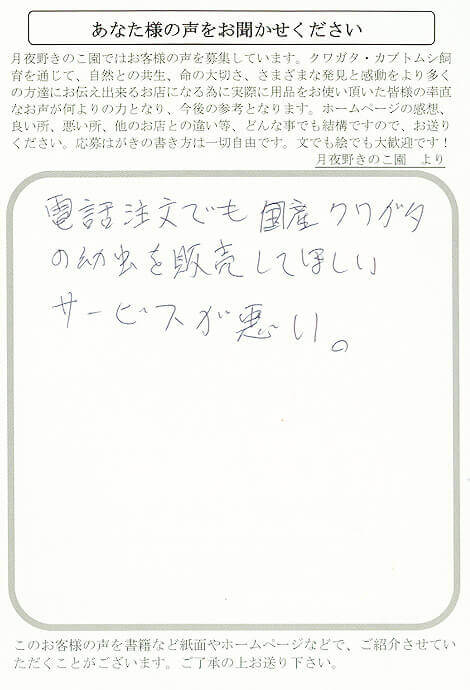 あなた様の声をお聞かせください
月夜野きのこ園ではお客様の声を募集しています。クワガタ・カブトムシ飼
育を通じて、自然との共生、命の大切さ、さまざまな発見と感動をより多く
の方達にお伝え出来るお店になる為に実際に用品をお使い頂いた皆様の率直
なお声が何よりの力となり、今後の参考となります。ホームページの感想、
良い所、悪い所、他のお店との違い等、どんな事でも結構ですので、お送り
ください。応募はがきの書き方は一切自由です。文でも絵でも大歓迎です！
月夜野きのこ園　より
電話注文でも国産クワガタ
の幼虫を販売してほしい
サービスが悪い。
このお客様の声を書籍など紙面やホームページなどで、ご紹介させてい
ただくことがございます。ご了承の上お送り下さい。